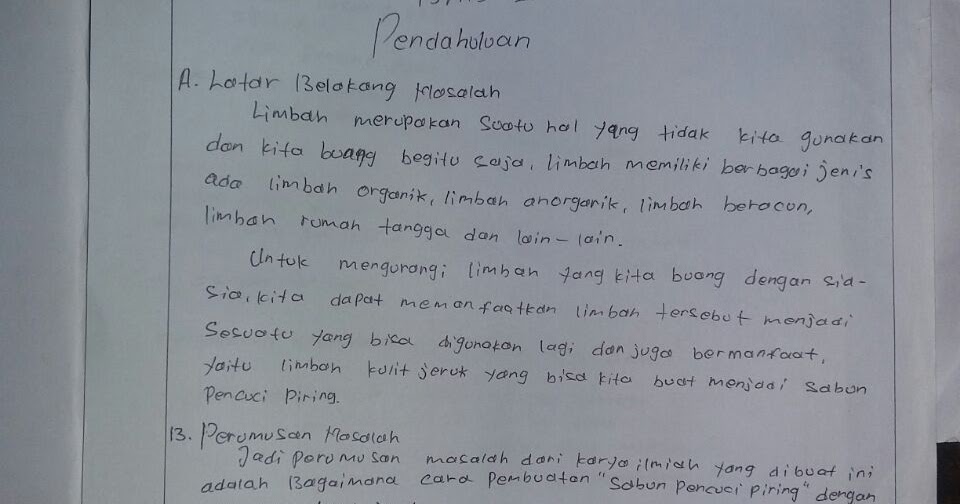 Pendahuluan
A. Latar Belakang Masalah
Limbah merupakan suatu hal yang tidak kita gunakan
dan kita buang begitu saja, limbah memiliki berbagai jenis
ada limbah organik, limbah anorganik, limbah beracun,
limbah rumah tangga dan lain-lain.
Untuk mengurangi limbah yang kita buang dengan sia-
sia, kita dapat memanfaatkan limbah tersebut menjadi
Sesuatu yang bisa digunakan lagi dan juga bermanfaat,
yaitu limbah kulit jeruk yang bisa kita buat menjadi sabun
Pencuci Piring.
B. Perumusan Masalah
Jadi perumusan masalah dari karya ilmiah yang dibuat ini
adalah Bagaimana cara Pembuatan "Sabun Pencuci Piring" dengan